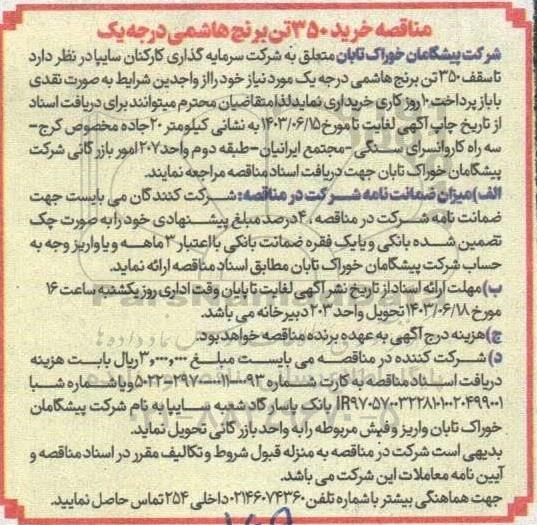 مناقصه خرید ۳۵۰ تن برنج هاشمی درجه یک
شرکت پیشگامان خوراک تابان متعلق به شرکت سرمایه گذاری کارکنان سایپا در نظر دارد
تا سقف ۳۵۰ تن برنج هاشمی درجه یک مورد نیاز خود را از واجدین شرایط به صورت نقدی
با باز پرداخت ۱۰ روز کاری خریداری نماید لذا متقاضیان محترم میتوانند برای دریافت اسناد
از تاریخ چاپ آگهی لغایت تا مورخ ۱۴۰۳/۰۶/۱۵ به نشانی کیلومتر ۲۰ جاده مخصوص کرج-
سه راه کاروانسرای سنگی-مجتمع ایرانیان-طبقه دوم واحد ۲۰۷ امور بازرگانی شرکت
پیشگامان خوراک تابان جهت دریافت اسناد مناقصه مراجعه نمایند.
الف) میزان ضمانت نامه شرکت در مناقصه: شرکت کنندگان می بایست جهت
ضمانت نامه شرکت در مناقصه، ۴ درصد مبلغ پیشنهادی خود را به صورت چک
تضمین شده بانکی و یا یک فقره ضمانت بانکی با اعتبار ۳ ماهه و یا واریز وجه به
حساب شرکت پیشگامان خوراک تابان مطابق اسناد مناقصه ارائه نماید.
ب) مهلت ارائه اسناد از تاریخ نشر آگهی لغایت تا پایان وقت اداری روز یکشنبه ساعت ۱۶
مورخ ۱۴۰۳/۰۶/۱۸ تحویل واحد ۲۰۳ دبیرخانه می باشد.
ج) هزینه درج آگهی به عهده برنده مناقصه خواهد بود.
د) شرکت کننده در مناقصه می بایست مبلغ ۳,۰۰۰,۰۰۰ ریال بابت هزینه
دریافت اسناد مناقصه به کارت شماره
بانک پاسارگاد شعبه سایپا به نام شرکت پیشگامان
خوراک تابان واریز و فیش مربوطه را به واحد بازرگانی تحویل نماید.
بدیهی است شرکت در مناقصه به منزله قبول شروط و تکالیف مقرر در اسناد مناقصه و
آیین نامه معاملات این شرکت می باشد.
جهت هماهنگی بیشتر با شماره تلفن ۰۲۱۴۶۰۷۴۳۶۰ داخلی ۲۵۴ تماس حاصل نمایید.